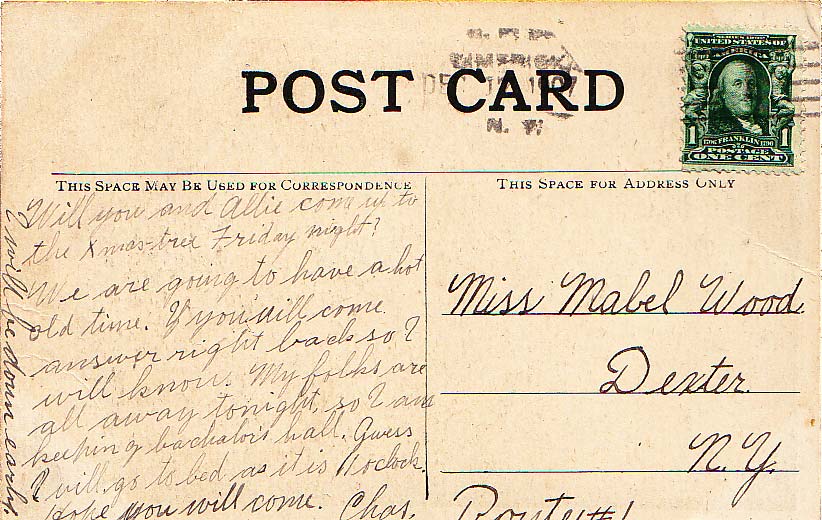 POST CARD
N. Y.
UNITED STATES OF
AMERICA
1 FRANKLIN 1
POSTAGE
ONE CENT
THIS SPACE MAY BE USED FOR CORRESPONDENCE
THIS SPACE FOR ADDRESS ONLY
Will you and Allie come up to
the Xmas-tree Friday night?
We are going to have a hot
old time. If you will come
answer right back so I
will know. My folks are
all away tonight, so I am
keeping bachalor's hall. Guess
I will go to bed as it is 11 oclock.
Hope you will come. Chas.
I will be down early.
Miss Mabel Wood.
Dexter.
N.Y.
Route #1